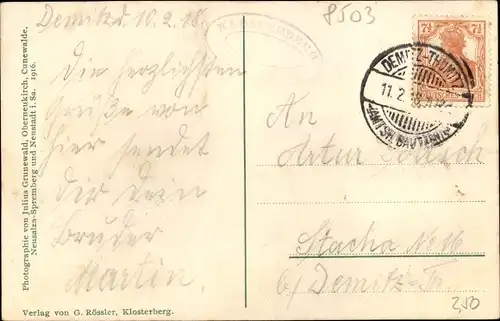 8503
Demitz d. 10.2.18.
Die herzlichsten
Grüße von
hier sendet
dir dein
Bruder
Martin.
An
Artur
Stacha No
b/ Demitz-Th.
2,50
7½
7½
DEMITZ-THUMITZ
11.2.
(AMTSH. BAUTZEN)
Photographie von Julius Grunewald, Oberneukirch, Cunewalde,
Neusalza-Spremberg und Neustadt i. Sa. 1916.
Verlag von G. Rössler, Klosterberg.